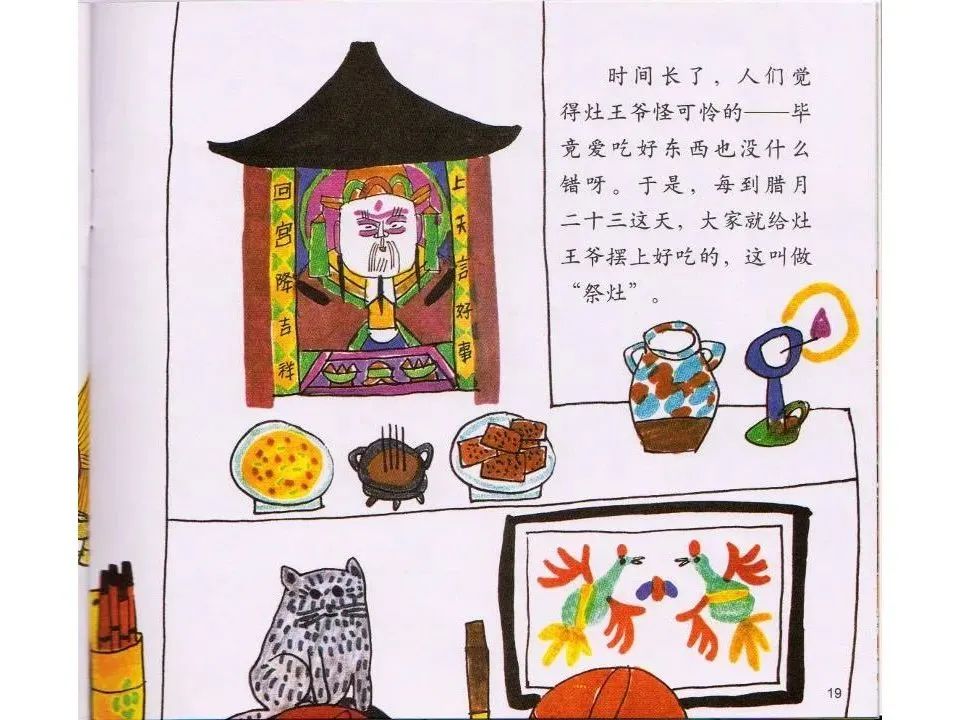 时间长了，人们觉
得灶王爷怪可怜的——毕
竟爱吃好东西也没什么
错呀。于是，每到腊月
二十三这天，大家就给灶
王爷摆上好吃的，这叫做
“祭灶”。
上天言好事
回宫降吉祥
19